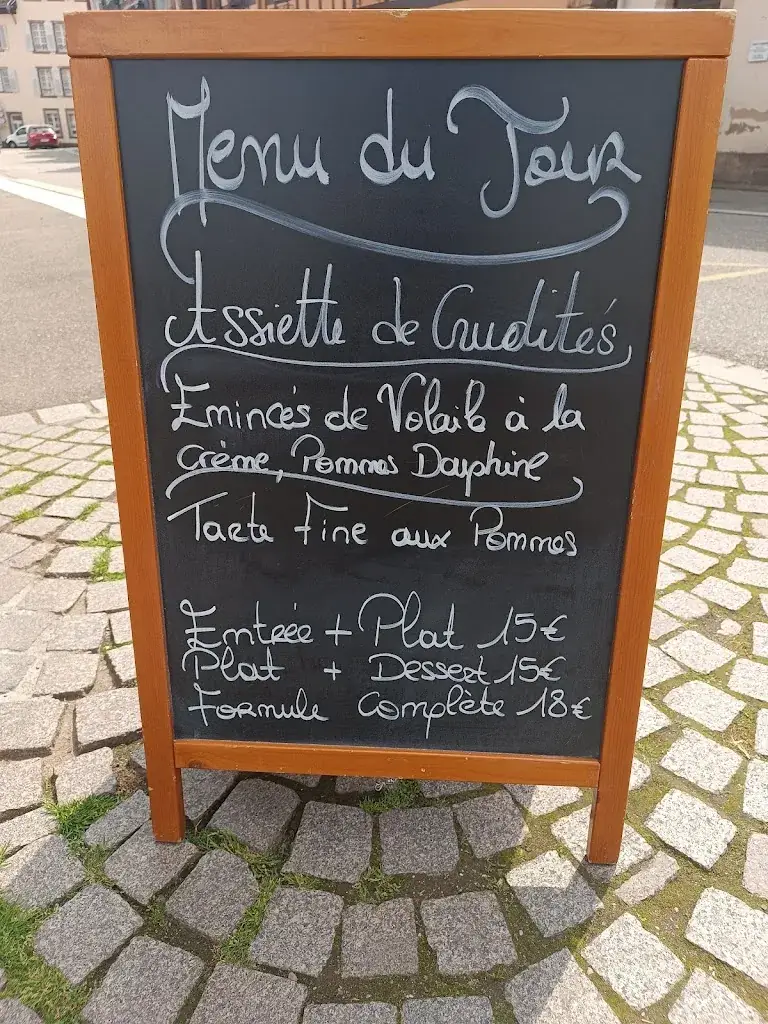 Menu du Jour
Assiette de Crudités
Emincés de Volaille à la
crème, Pommes Dauphine
Tarte Fine aux Pommes
Entrée + Plat 15€
Plat + Dessert 15€
Formule Complète 18€